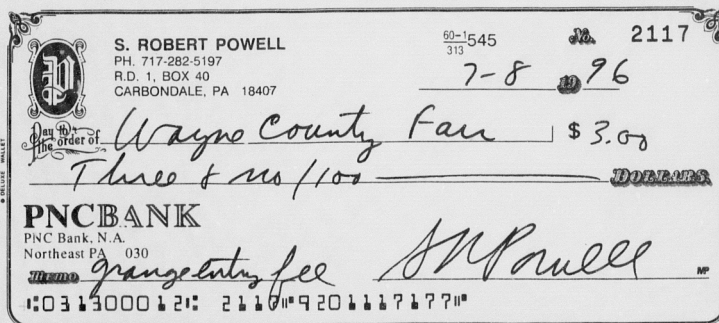 S. ROBERT POWELL
PH. 717-282-5197
R.D. 1, BOX 40
CARBONDALE, PA 18407
60-1/313 545
No. 2117
7-8 19 96
Pay to the order of Wayne County Fair $ 3.00
Three & no/100 DOLLARS
PNCBANK
PNC Bank, N.A.
Northeast PA 030
Memo grange entry fee S R Powell MP
⑆031300012⑆ 2117⑈9201117177⑈
DELUXE WALLET